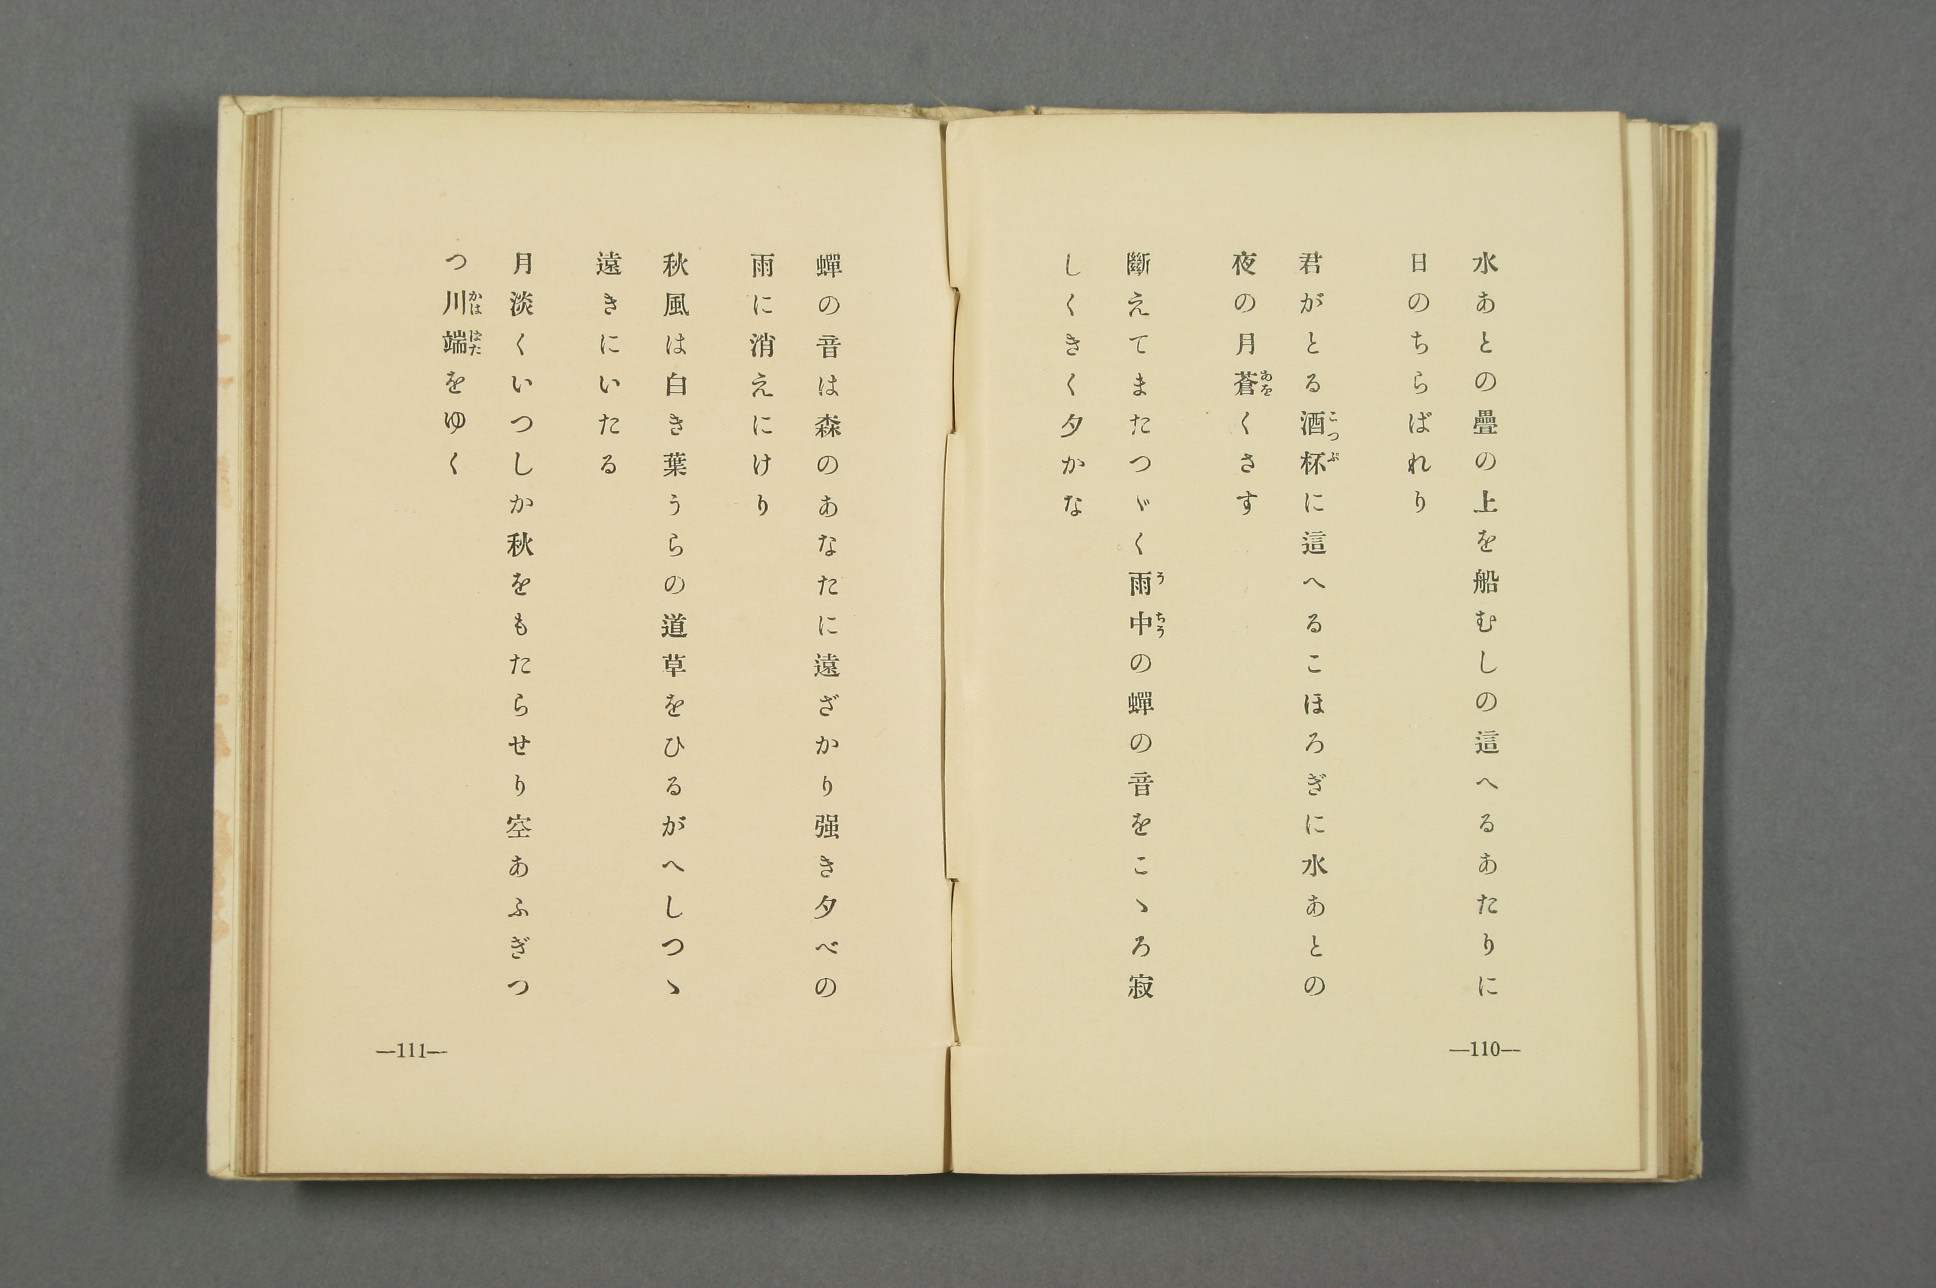 水あとの疊の上を船むしの這へるあたりに
日のちらばれり
君がとる酒杯に這へるこほろぎに水あとの
こつぷ
夜の月蒼くさす
あを
斷えてまたつゞく雨中の蟬の音をこゝろ寂
うちう
しくきく夕かな
—110—
蟬の音は森のあなたに遠ざかり强き夕べの
雨に消えにけり
秋風は白き葉うらの道草をひるがへしつゝ
遠きにいたる
月淡くいつしか秋をもたらせり空あふぎつ
つ川端をゆく
かははた
—111—